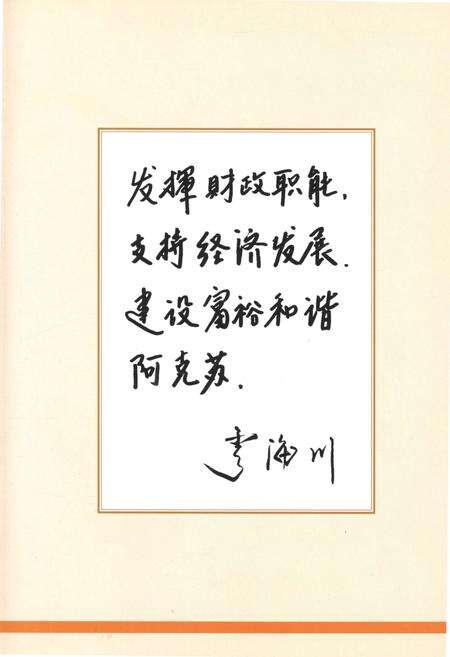 发揮财政职能,
支持经济发展.
建设富裕和谐
阿克苏.
李海川